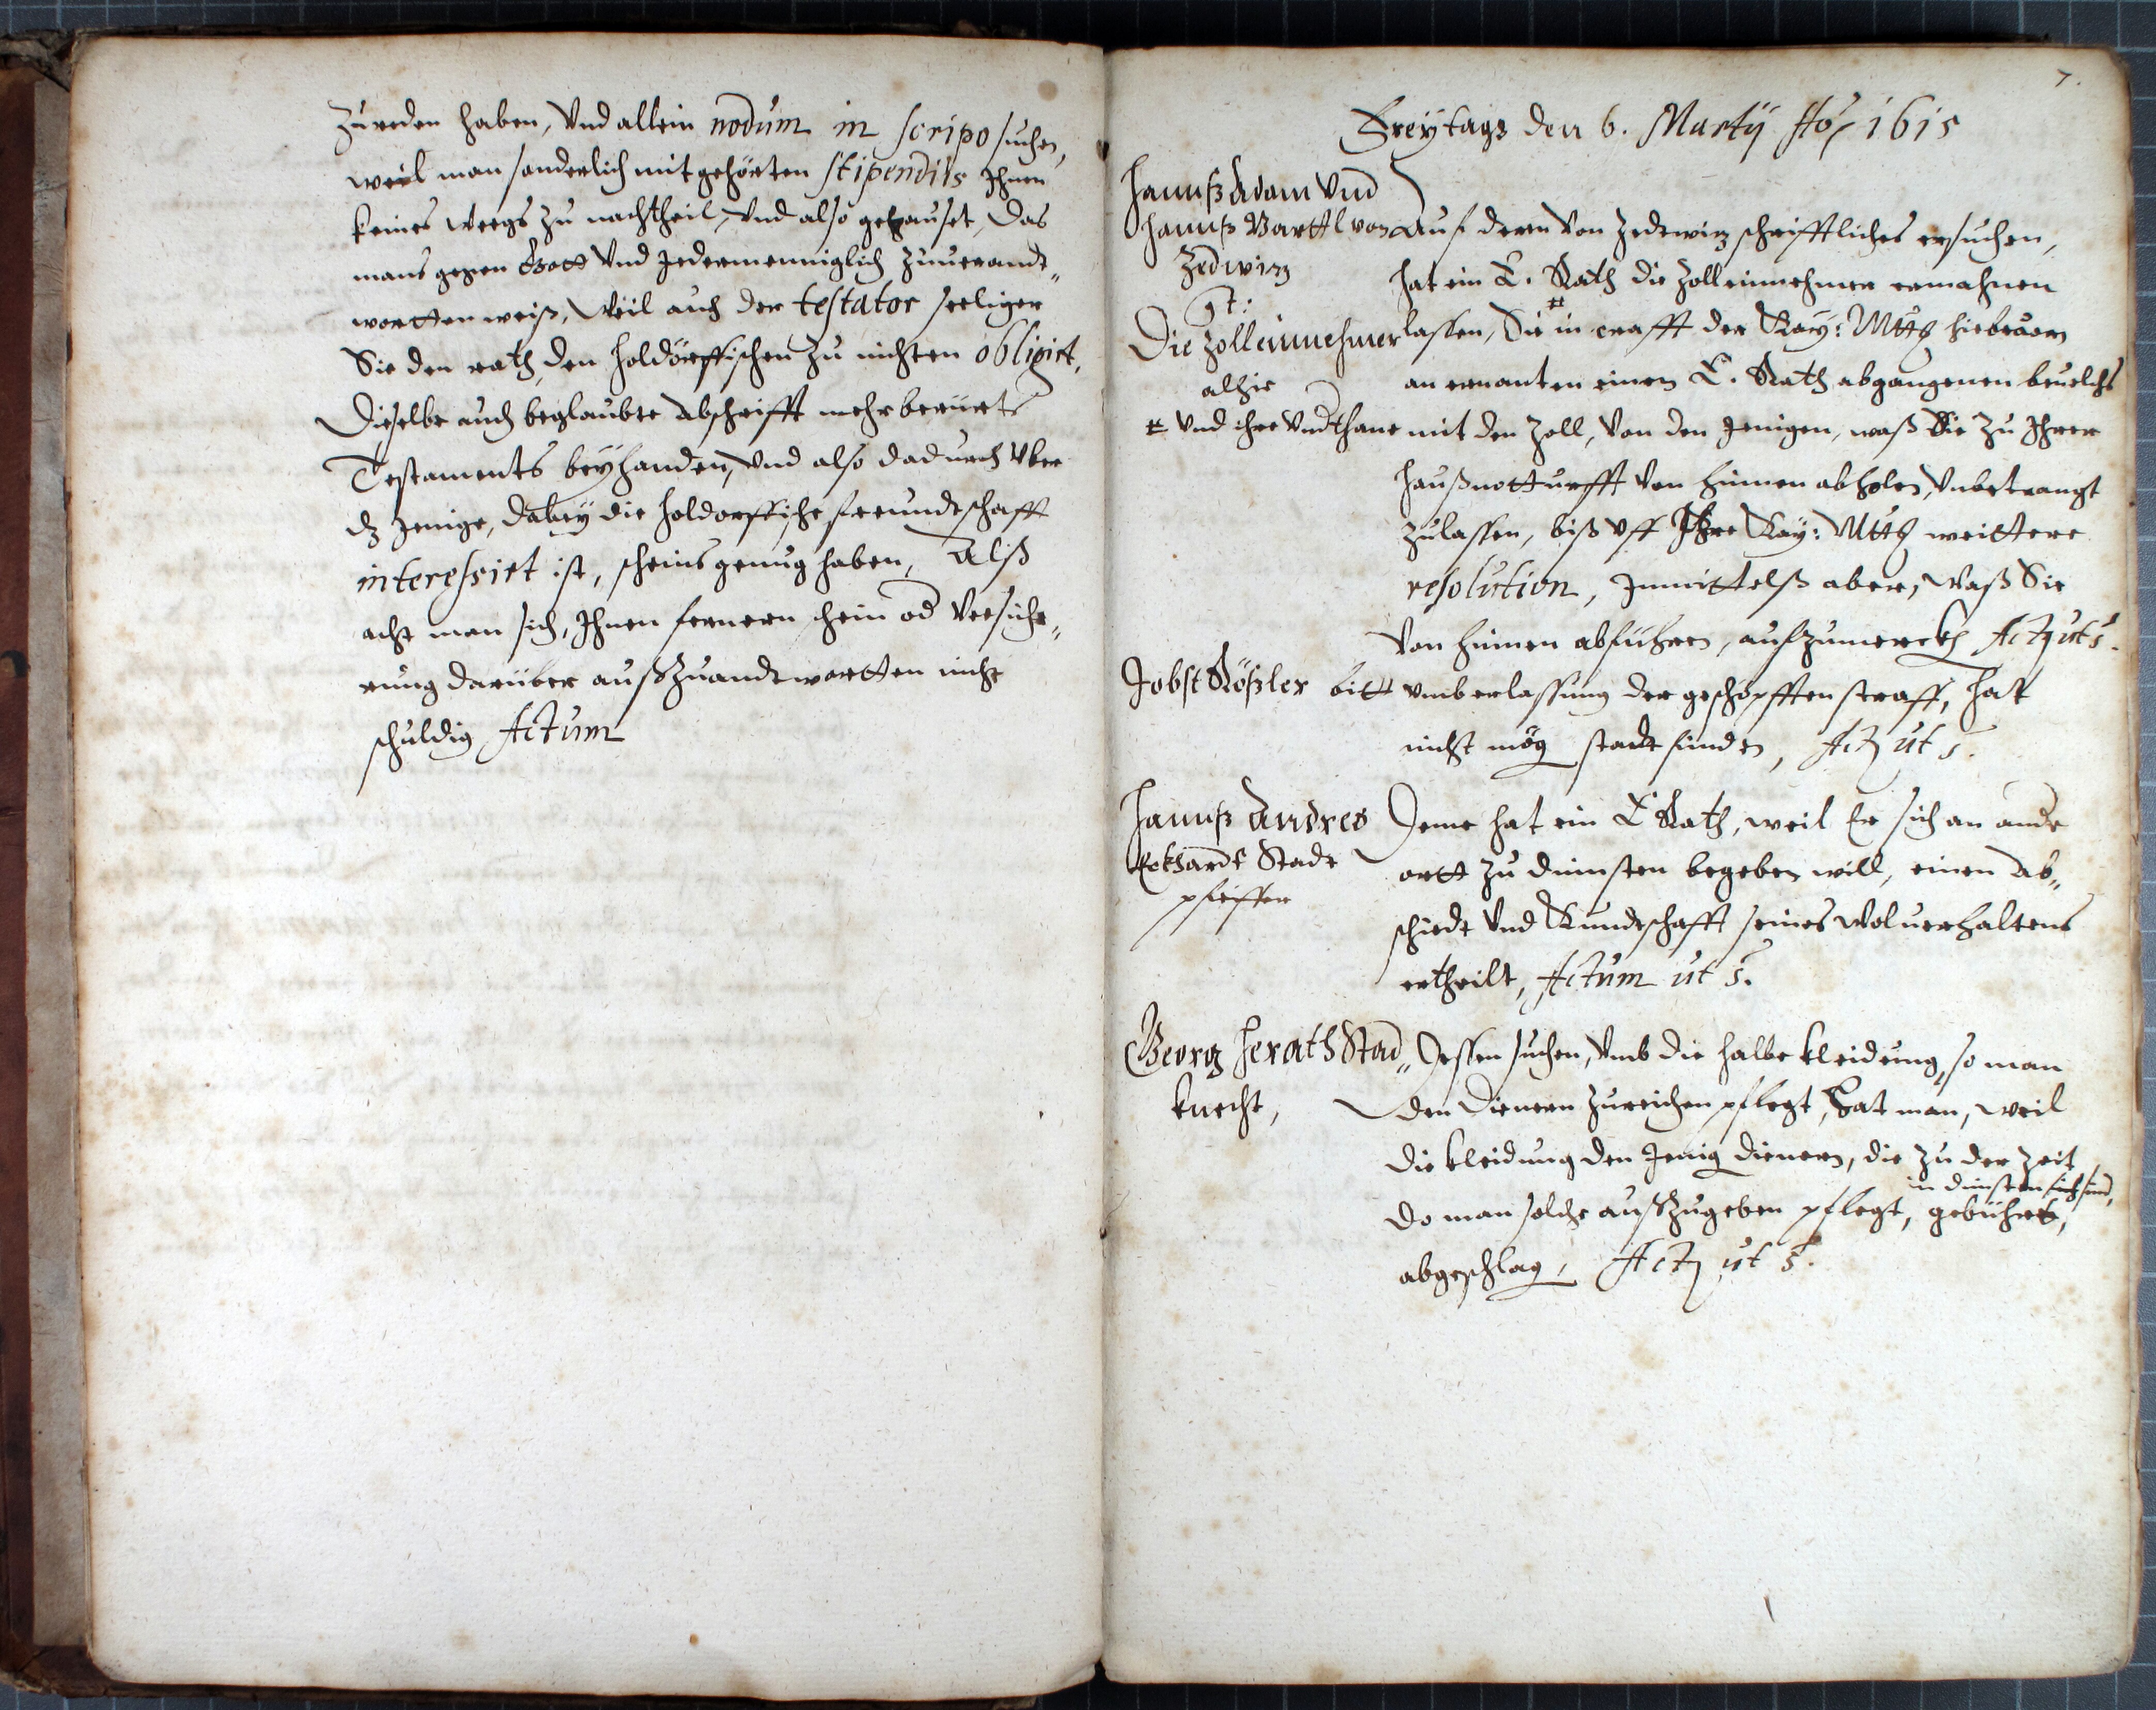 zureden haben, Vnd allein nodum in scripo suchen,
weil man sonderlich mit gehörten stipendiis Ihnen
keines weegs zu nachtheil, Vnd also gehauset, das
mans gegen Gott Vnd Jedermenniglich zuuerandt„
wortten weiß, Weil auch der testator seeliger
Sie den rath, den Holdörffischen zu nichten obligirt,
Dieselbe auch beglaubte Abschrifft mehrberürts
Testaments beyhanden, Vnd also dadurch Vber
dz Jenige, dabey die Holdorffische freundtschafft
interessirt ist, scheins genug haben, Alß
acht man sich, Ihnen fernern schein od Versiche„
rung darüber außzuandtwortten nicht
schuldig Actum
7.
Freytags den 6. Martij Aõ 1615
Hannß Adam Vnd
Hannß Barttl von
Zedwiz
gt:
Die Zolleinnehmer
alhie
# Vnd ihre Vndthane
Auf deren Von Zedewiz schrifftliches ersuchen,
hat ein E. Rath die Zolleinnehmer ermahnen
lassen, Sie # in crafft der Kay: Mtt hiebeuorn
an ernanten einen E. Rath abgangenen beuelchs
mit den Zoll, Von den Jenigen, waß Sie zu Ihrer
Haußnotturfft Von hinnen abholen, Vnbetrangt
zulassen, biß Vff Ihre Kay: Mtt weittere
resolution, Inmittelß aber, Waß Sie
Von hinnen abführen, aufzumercken Act ut s.
Jobst Rößler bitt vmb erlassung der geschöpfften straff, hat
nicht mög stadt finden, Act ut s.
Hannß Andreß
Eckhardt Stadt
pfeiffer
Deme hat ein E Rath, weil Er sich an andr
ortt zu diensten begeben will, einen Ab„
schiedt Vnd Kundtschafft seines Woluerhaltens
ertheilt, Actum ut s.
Georg Herath Stad„
knecht,
Dessen suchen, Vmb die halbe kleidung, so man
den Dienern zureichen pflegt, Hat man, weil
die kleidung den Jenig dienern, die zu der Zeit
in diensten sich sind,
do man solche außzugeben pflegt, gebühret,
abgeschlag, Act ut s.